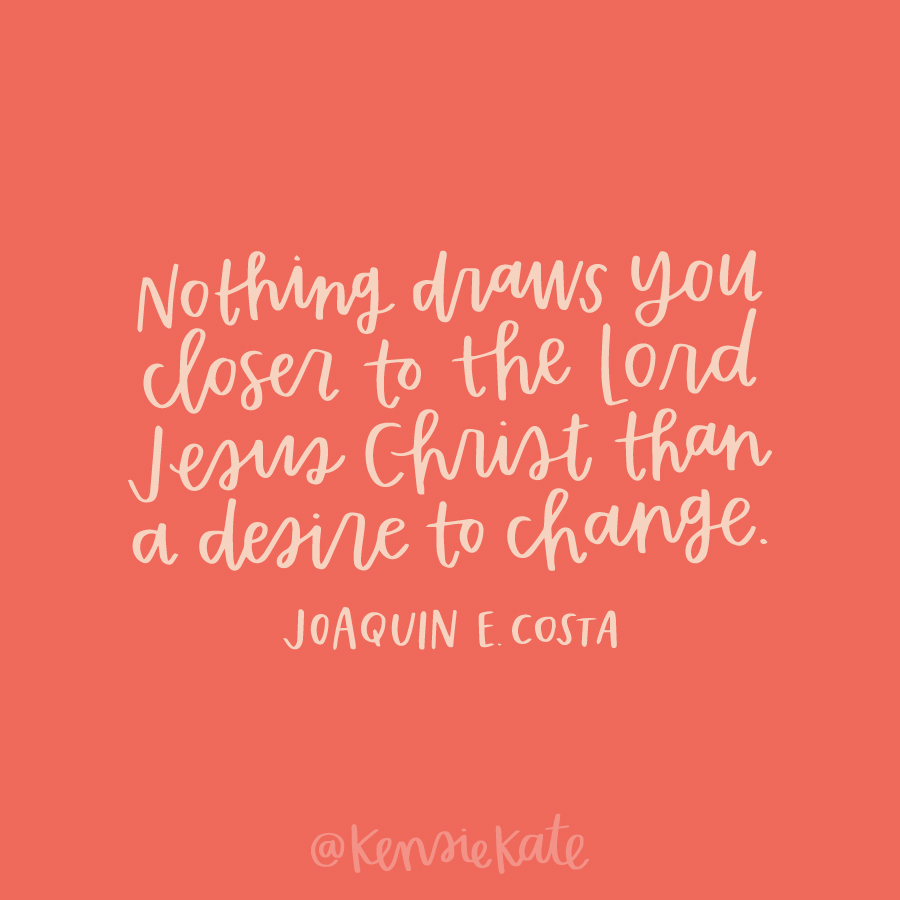 Nothing draws you
closer to the Lord
Jesus Christ than
a desire to change.
JOAQUIN E. COSTA
@kensiekate